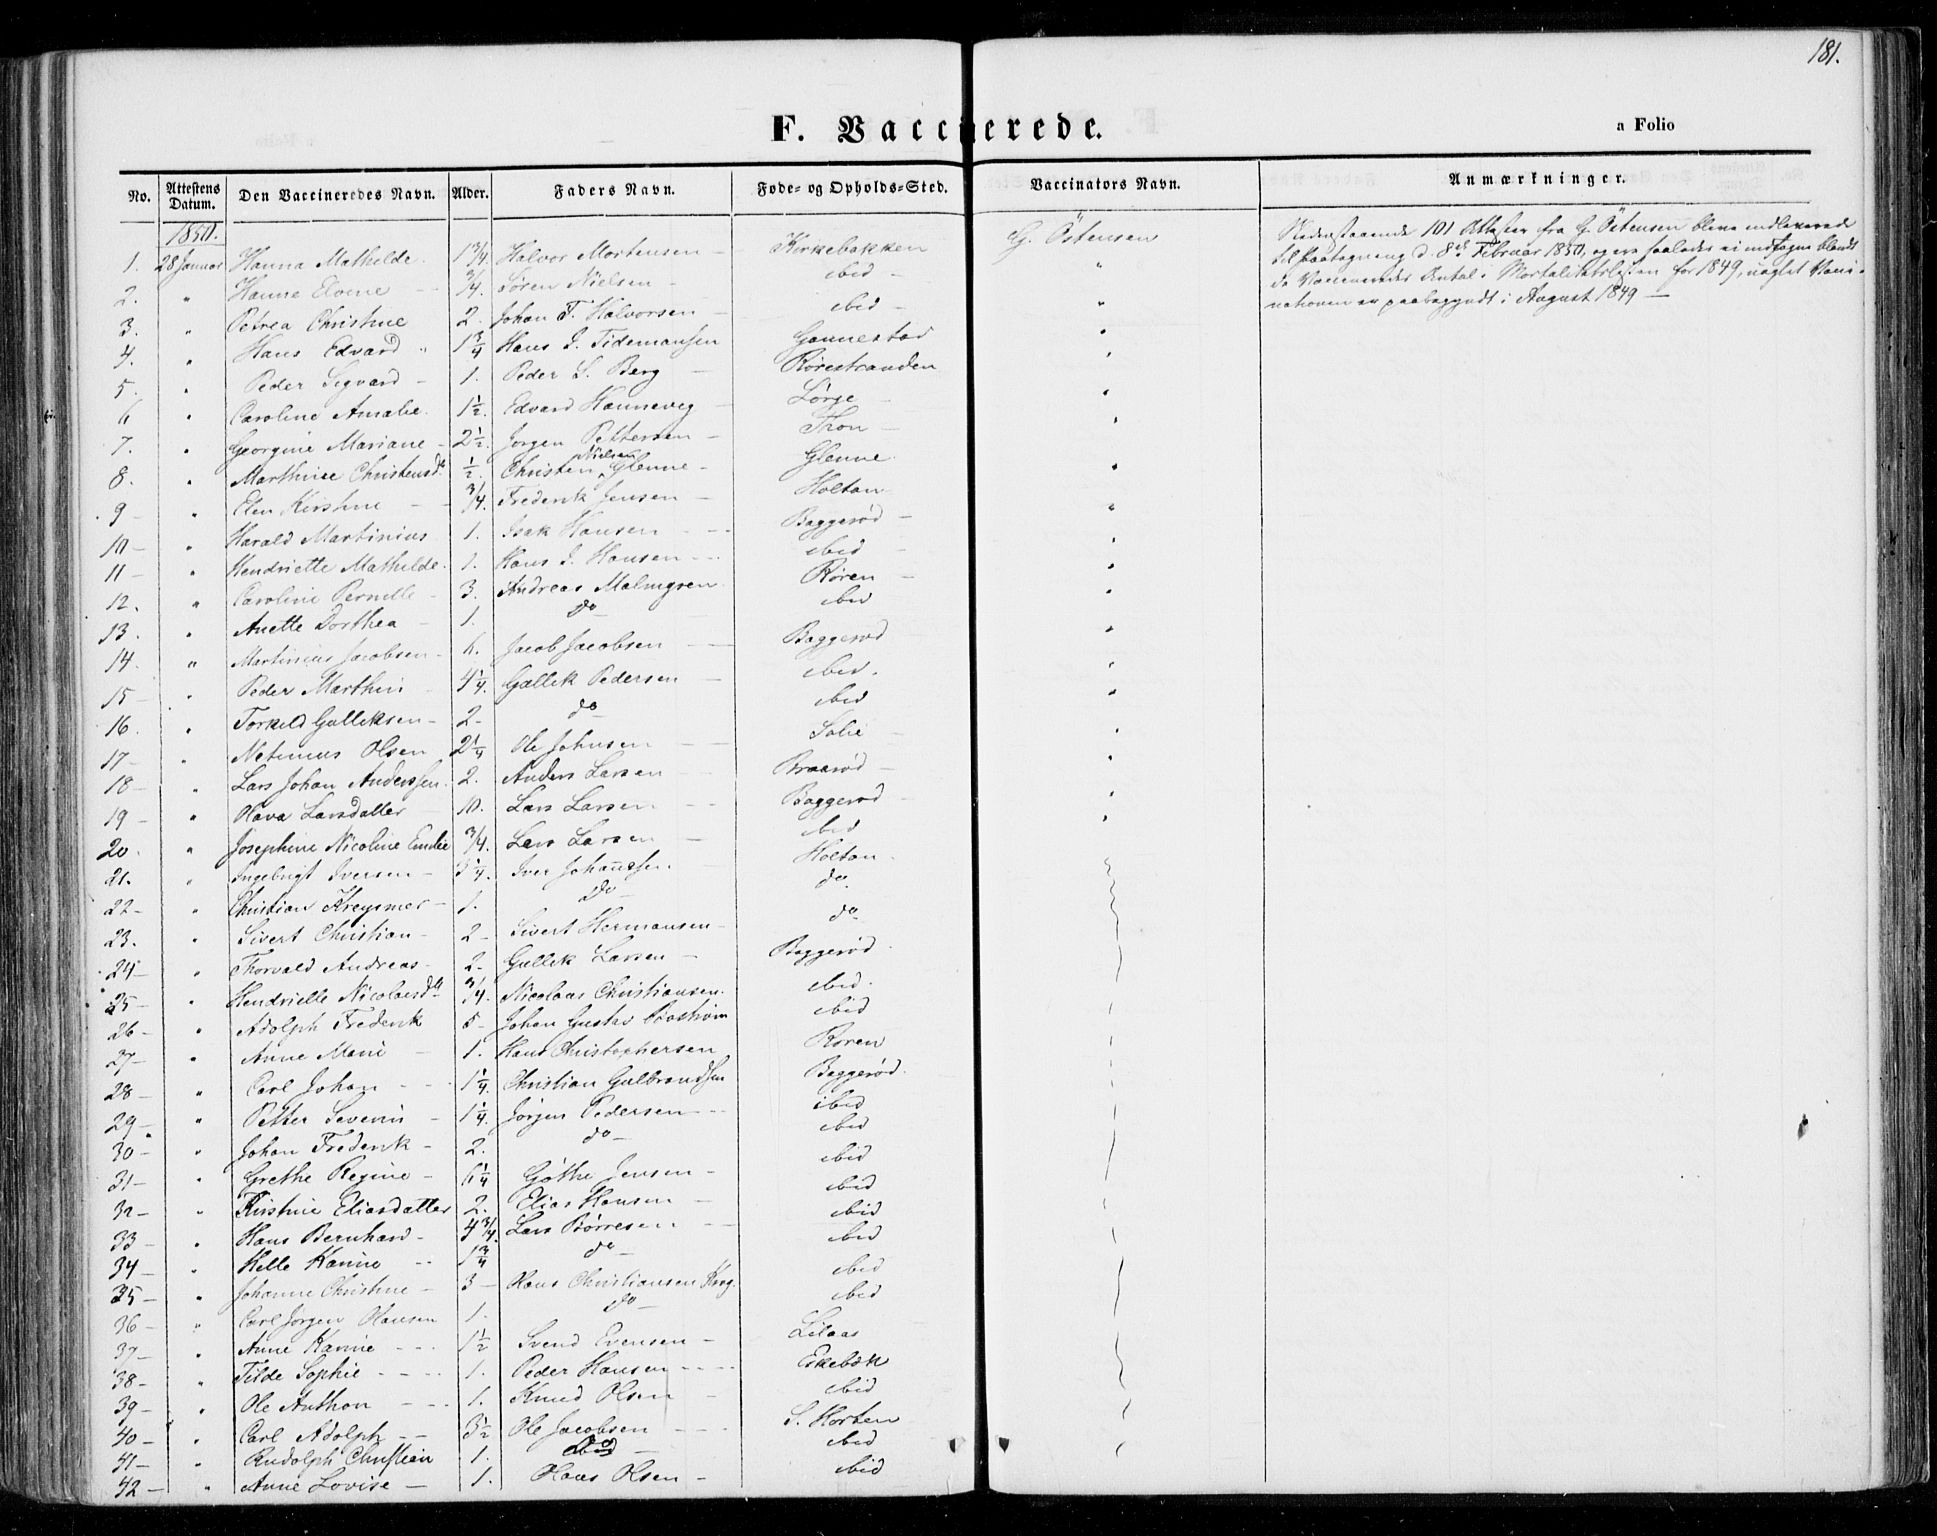 181.
F. Vaccinerede.
a Folio
No. Attestens Datum. Den Vaccineredes Navn. Alder. Faders Navn. Føde- og Opholds-Sted. Vaccinators Navn. Anmærkninger.
1850.
1. 28 Januar Hanna Mathilde. 1 3/4. Halvor Mortensen Kirkebakken G. Östensen
2. " Hanne Elvine 3/4. Sören Nielsen ibid "
3. " Petrea Christine 2. Johan F. Halvorsen ibid "
4. " Hans Edvard 1 3/4 Hans J. Tidemansen Gannestad "
5. " Peder Sigvard 1. Peder S. Berg Rørestranden "
6 " Caroline Amalie. 1 1/2. Edvard Hanneveg Lørge "
7. " Georgine Mariane 2 1/2. Jørgen Pettersen Thon "
8. " Marthine Christensd 1/2. Christen Nielsen Glenne Glenne "
9 " Elen Kirstine 3/4. Frederik Jensen Holtan "
10 " Harald Martinius 1. Isak Hansen Baggerød "
11 " Hendriette Mathilde. 1. Hans J. Hansen ibid "
12. " Caroline Pernille 3. Andreas Malmgren Røren "
13. " Anette Dorthea 1. do ibid "
14. " Martinius Jacobsen 6. Jacob Jacobsen Baggerød "
15 " Peder Marthin 4 1/4. Gullik Pedersen ibid. "
16. " Torkild Gulliksen 2 do ibid "
17 " Netinius Olsen 2 1/4 Ole Johnsen Solie "
18 " Lars Johan Anderssen. 2. Anders Larsen Braarød "
19 " Olava Larsdatter 10. Lars Larsen Baggerød "
20. " Josephine Nicoline Emilie 3/4. Lars Larsen ibid "
21. " Ingebrigt Iversen 3 1/4. Iver Johannesen. Holtan.
22 " Christian Kreysmer 1. do do.
23. " Sivert Christian 2 Sivert Hermansen do
24 " Thorvald Andreas 2. Gullik Larsen Baggerød
25 " Hendrielle Nicolaisd 3/4. Nicolaas Christiansen. ibid.
26 " Adolph Frederik 5 Johan Gustav ibid
27 " Anne Marie 1. Hans Christophersen Røren
28 " Carl Johan 1 1/4. Christian Gulbrandsen Baggerød.
29 " Petter Severin 1 1/4. Jørgen Pedersen ibid
30 " Johan Frederik 2. do ibid
31 " Grethe Regine 6 1/4 Göthe Jensen ibid
32 " Kirstine Eliasdatter 2. Elias Hansen ibid
33 " Hans Bernhard 4 3/4. Lars Börresen ibid
34 " Helle Karine 1 3/4 do ibid
35 " Johanne Christine 3 Hans Christiansen Krog. ibid
36 " Carl Jørgen Hansen 1. do ibid
37 " Anne Karine 1 1/2 Svend Evensen Lilaas
38 " Tilde Sophie 1. Peder Hansen Ekebæk
39 " Ole Anthon 1. Knud Olsen ibid
40 " Carl Adolph 3 1/2 Ole Jacobsen S. Horten
41 " Rudolph Christian 1. do ibid
42 " Anne Lovise 1. Hans Olsen ibid
Nedenstaaende 101 Attester fra G. Östensen bleve indleverede
til paategning d. 8de Februar 1850, og ere saaledes ei indtagne blandt
de Vaccineredes Antal i Mortalitetslisten for 1849, uagtet Vacci-
nationen er paabegyndt i August 1849 —